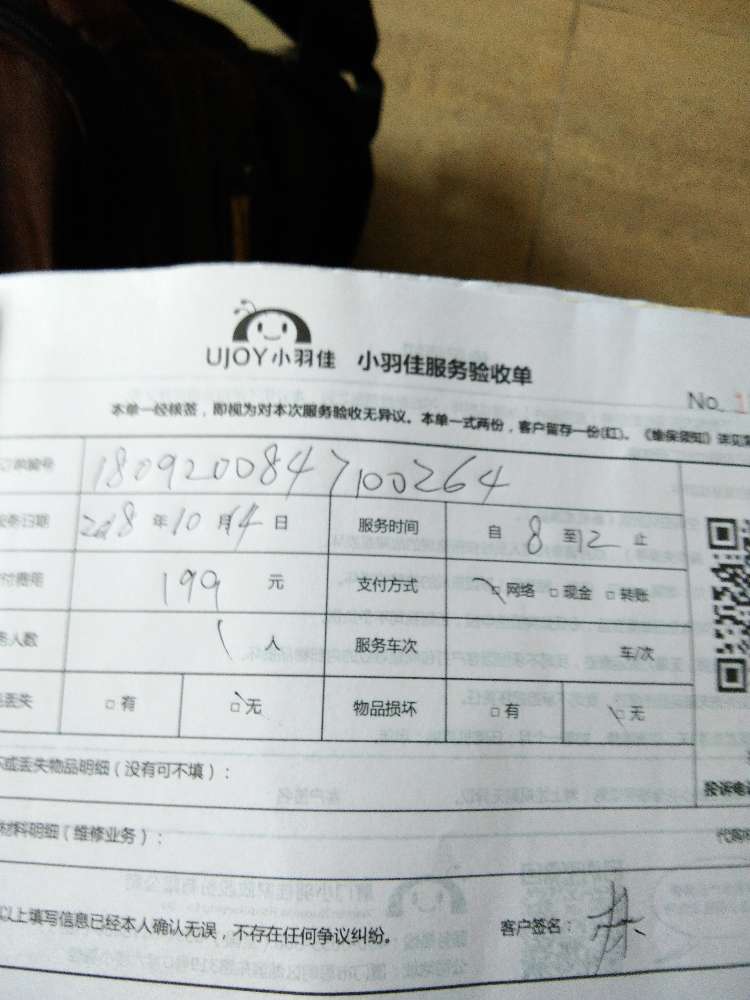 UJOY小羽佳 小羽佳服务验收单
No. 1
本单一经核签，即视为对本次服务验收无异议。本单一式两份，客户留存一份(红)。《维保须知》详见
订单编号 1809200847100264
服务日期 2018 年 10 月 14 日 服务时间 自 8 至 12 止
付费用 199 元 支付方式 □ 网络 □ 现金 □ 转账
人数 1 人 服务车次 车/次
丢失 □ 有 □ 无 物品损坏 □ 有 □ 无
坏或丢失物品明细（没有可不填）：
投诉电
材料明细（维修业务）：
以上填写信息已经本人确认无误，不存在任何争议纠纷。 客户签名：